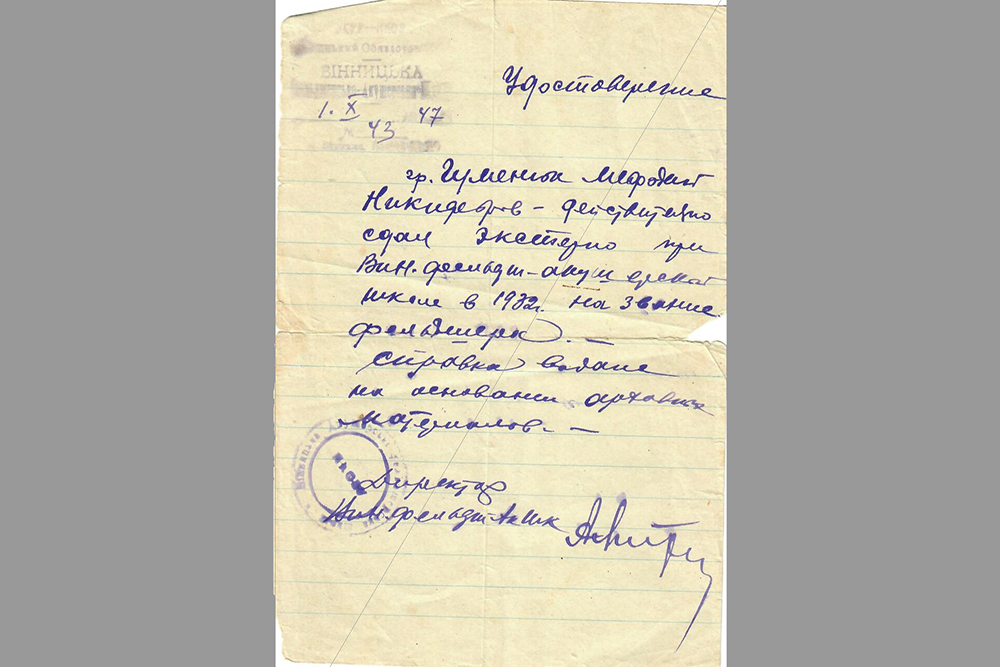 ВІННИЦЬКА
Удостоверение
1. X 47
43
гр. Гуменюк Мефодий
Никифоров – действительно
сдал экстерно при
Вин. фельдш-акушерской
школе в 1932г. на звание
фельдшера. –
Справка выдана
на основании архивных
материалов. –
Директор
Вин фельдш Ак шк